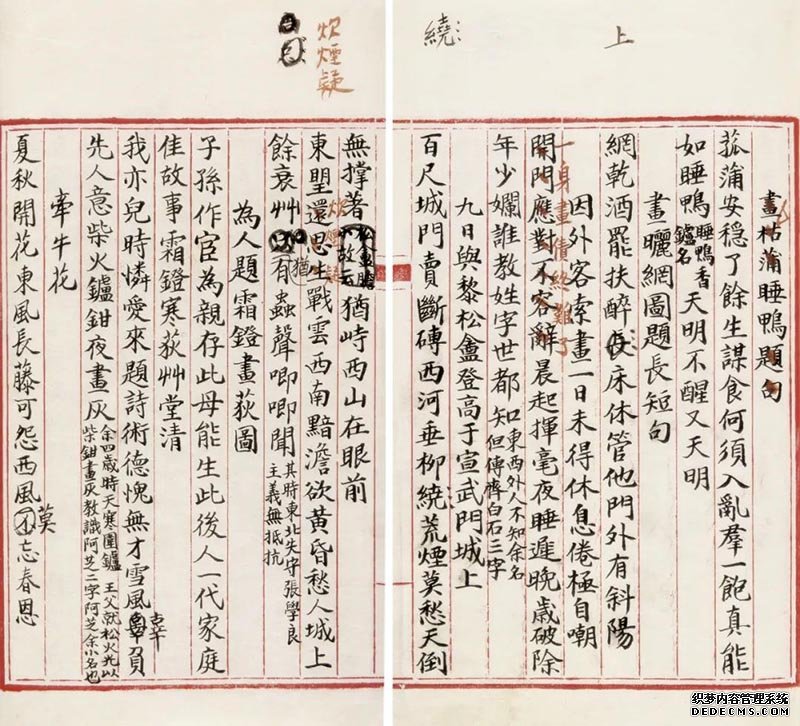 上
繞
畫枯蒲睡鴨題句
菰蒲安穩了餘生謀食何須入亂羣一飽真能
如睡鴨睡鴨香鑪名天明不醒又天明
畫曬網圖題長短句
網乾酒罷扶醉床休管他門外有斜陽
因外客索畫一日未得休息倦極自嘲
一身畫債終難了
閉門應對不容辭晨起揮毫夜睡遲晚歲破除
年少嬾誰教姓字世都知東西外人不知余名但傳齊白石三字
九日與黎松盦登高于宣武門城上
百尺城門賣斷磚西河垂柳繞荒煙莫愁天倒
炊煙疑
無撐著猶峙西山在眼前
東望還思生戰雲西南黯澹欲黃昏愁人城上
炊煙疑
餘衰艸猶有蟲聲唧唧聞其時東北失守張學良主義無抵抗
為人題霜鐙畫荻圖
子孫作宦為親存此母能生此後人一代家庭
佳故事霜鐙寒荻艸堂清
我亦兒時憐愛來題詩術德愧無才雪風辜負
先人意柴火鑪鉗夜畫灰余四歲時天寒圍鑪王父就松火光以柴鉗畫灰教識阿芝二字阿芝余小名也
牽牛花
夏秋開花東風長藤可怨西風莫忘春恩
织梦内容管理系统
DEDECMS.COM